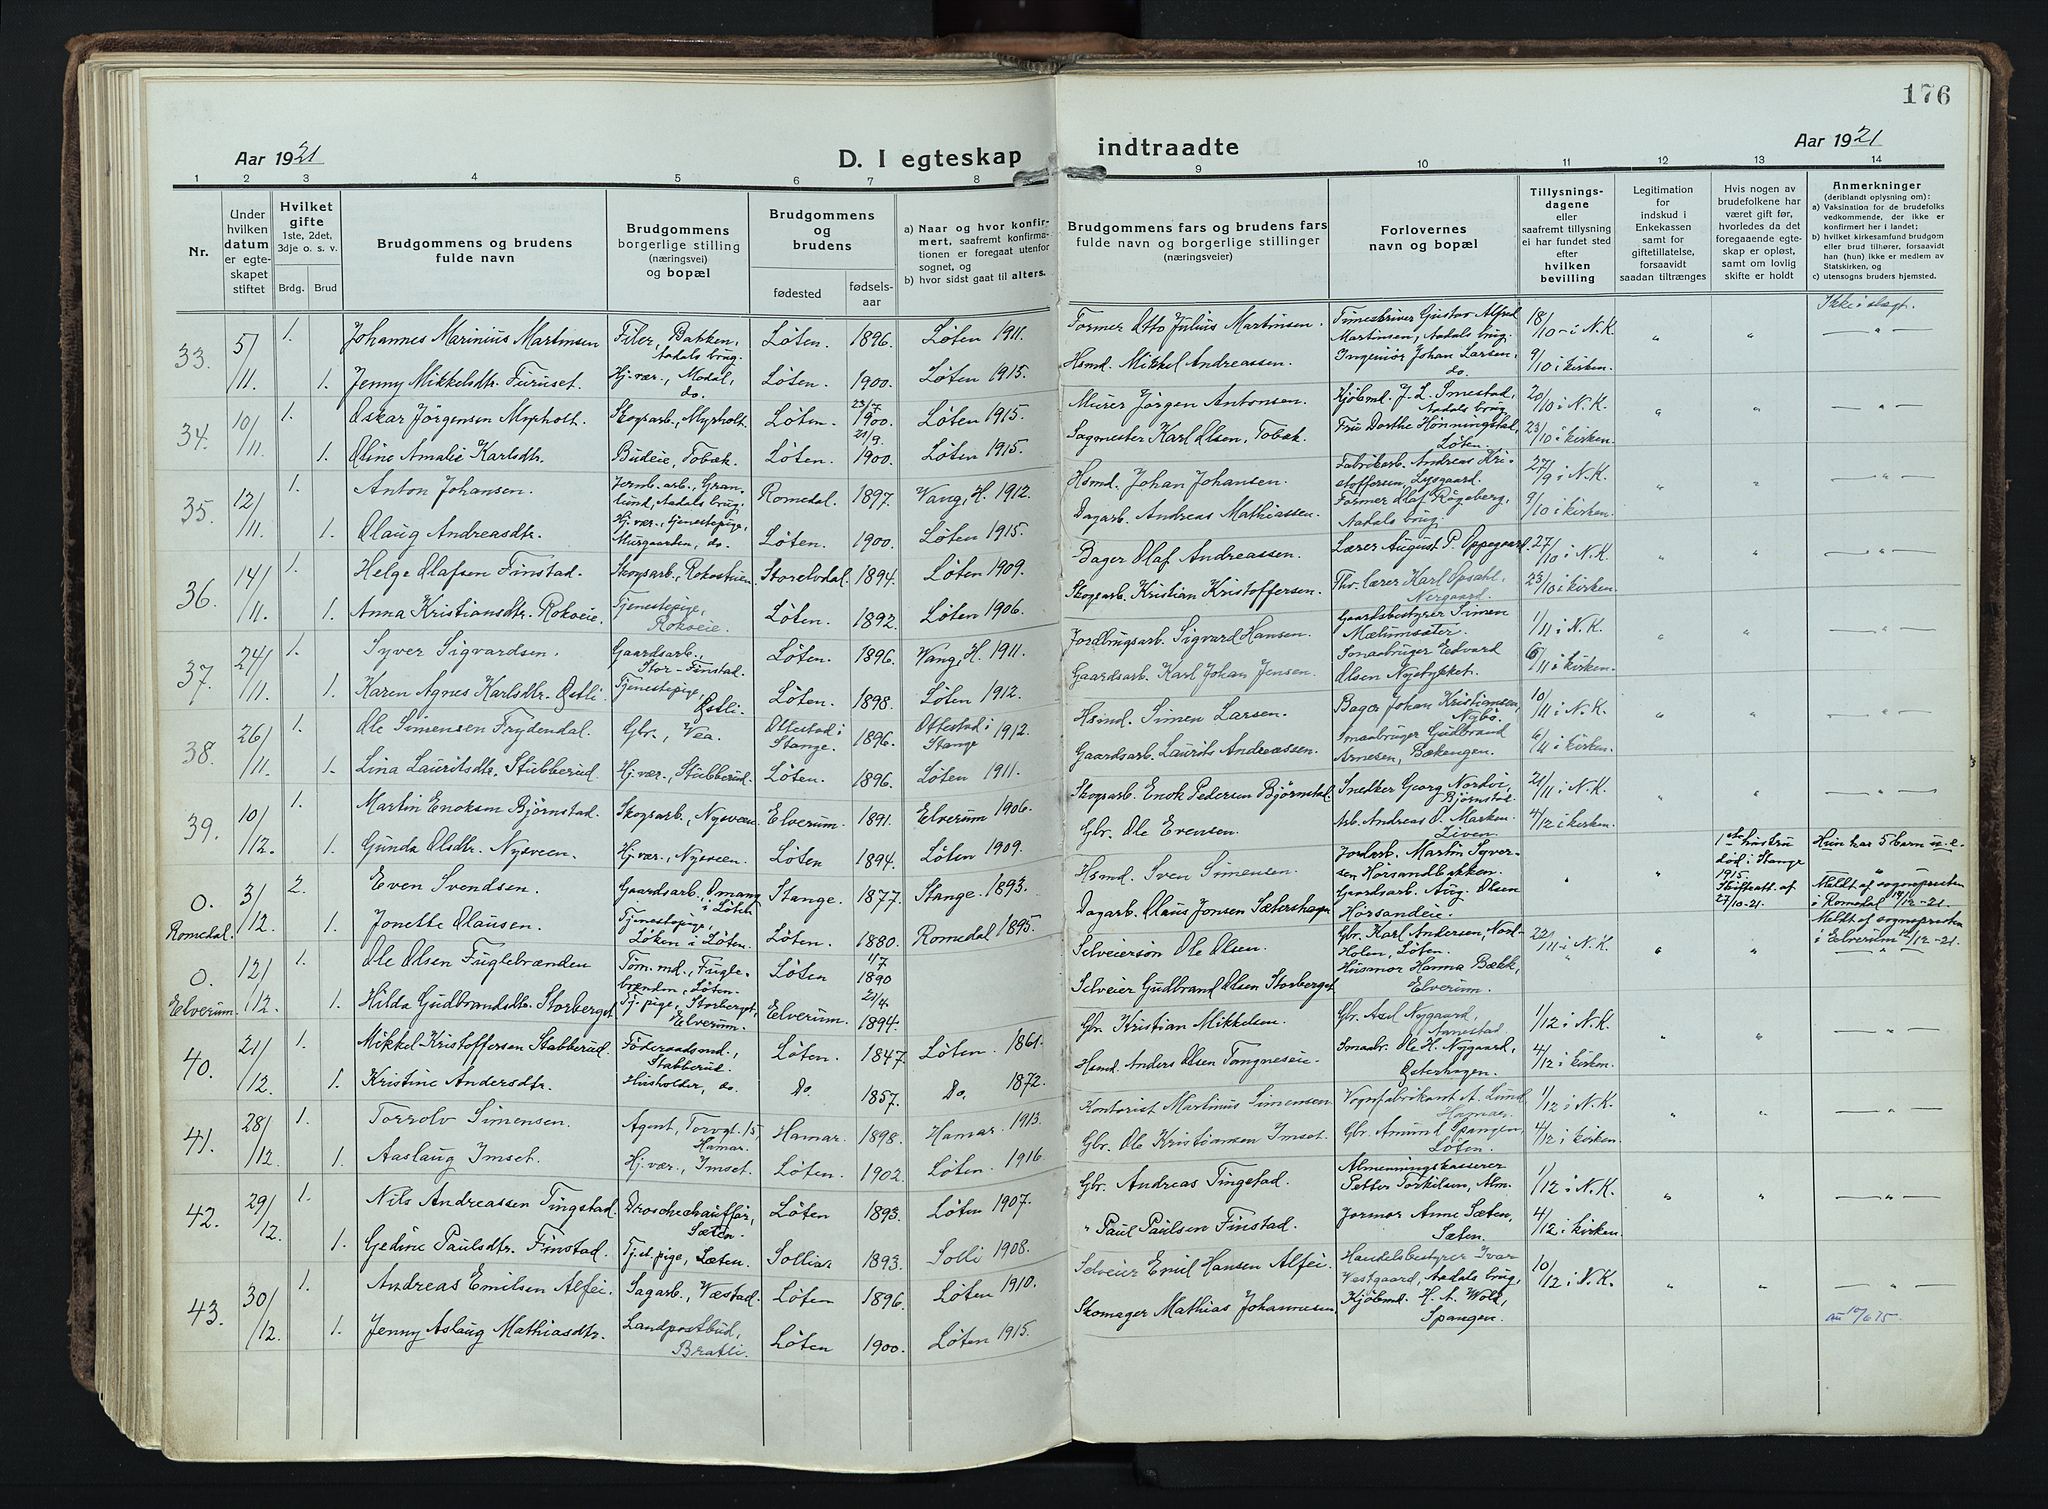 176
Aar 1921
D. I egteskap indtraadte
Aar 1921
1 2 3 4 5 6 7 8 9 10 11 12 13 14
Nr.
Under hvilken datum er egteskapet stiftet
Hvilket gifte 1ste, 2det, 3dje o. s. v.
Brdg. Brud
Brudgommens og brudens fulde navn
Brudgommens borgerlige stilling (næringsvei) og bopæl
Brudgommens og brudens
fødested
fødselsaar
a) Naar og hvor konfirmert, saafremt konfirmationen er foregaat utenfor sognet, og
b) hvor sidst gaat til alters.
Brudgommens fars og brudens fars fulde navn og borgerlige stillinger (næringsveier)
Forlovernes navn og bopæl
Tillysningsdagene eller saafremt tillysning ei har fundet sted efter hvilken bevilling
Legitimation for indskud i Enkekassen samt for giftetillatelse, forsaavidt saadan tiltrænges
Hvis nogen av brudefolkene har været gift før, hvorledes da det foregaaende egteskap er opløst, samt om lovlig skifte er holdt
Anmerkninger (deriblandt oplysning om):
a) Vaksination for de brudefolks vedkommende, der ikke er konfirmert her i landet;
b) hvilket kirkesamfund brudgom eller brud tilhører, forsaavidt han (hun) ikke er medlem av Statskirken, og
c) utensogns bruders hjemsted.
33. 5/11. 1. Johannes Marinius Martinsen Filer, Bakken, Aadals brug. Løten. 1896. Løten 1911. Former Otto Julius Martinsen. Timeskriver Gustav Alfred Martinsen, Aadals brug. 18/10 i N.K. " " Ikke i slegt.
1. Jenny Mikkelsdtr. Furuset. Hj. vær., Modal, do. Løten. 1900. Løten 1915. Hsmd. Mikkel Andreassen. Ingeniør Johan Larsen, do. 9/10 i kirken.
34. 10/11. 1. Oskar Jørgensen Myrholt. Skogsarb., Myrholt. Løten. 23/7 1900. Løten 1915. Murer Jørgen Antonsen. Kjøbmd. J. L. Smestad, Aadals brug. 20/10 i N.K. " " — " —
1. Oline Amalie Karlsdtr. Budeie, Tobæk. Løten. 21/9. 1900. Løten 1915. Sagmester Karl Olsen, Tobæk. Fru Dorthe Hønningstal, Løten. 23/10 i kirken.
35. 12/11. 1. Anton Johansen. Jernb. arb., Granlund, Aadals brug. Romedal. 1897. Vang, H. 1912. Hsmd. Johan Johansen. Fabrikarb. Andreas Kristoffersen, Lysgaard. 27/9 i N.K. " " — " —
1. Olaug Andreasdtr. Hj. vær., tjenestepige, Murgaarden, do. Løten. 1900. Løten 1915. Dagarb. Andreas Mathiassen. Former Olaf Røgeberg, Aadals brug. 9/10 i kirken.
36. 14/11. 1. Helge Olafsen Finstad. Skogsarb., Rokostuen. Storelvdal. 1894. Løten 1909. Bager Olaf Andreassen. Lærer August P. Oppegaard. 27/10 i N.K. " " — " —
1. Anna Kristiansdtr. Rokoeie. Tjenestepige, Rokoeie. Løten. 1892. Løten 1906. Skogsarb. Kristian Kristoffersen. Thv. lærer Karl Opsahl, Nergaard. 23/10 i kirken.
37. 24/11. 1. Syver Sigvardsen. Gaardsarb., Stor-Finstad. Løten. 1896. Vang, H. 1911. Jordbrugsarb. Sigvard Hansen. Gaardsbestyrer Simen Mælumsæter. 1/11 i N.K. " " — " —
1. Karen Agnes Karlsdtr. Østli. Tjenestepige, Østli. Løten. 1898. Løten 1912. Gaardsarb. Karl Johan Jensen. Smaabruger Edvard Olsen Nystykket. 6/11 i kirken.
38. 26/11. 1. Ole Simensen Frydendal. Gbr., Vea. Ottestad i Stange. 1896. Ottestad i Stange 1912. Hsmd. Simen Larsen. Bager Johan Kristiansen, Nybo. 10/11 i N.K. " " — " —
1. Lina Lauritsdtr. Stubberud. Hj. vær., Stubberud. Løten. 1896. Løten 1911. Gaardsarb. Laurits Andreassen. Smaabruger Gudbrand Arnesen, Bækengen. 6/11 i kirken.
39. 10/12. 1. Martin Enoksen Bjørnstad. Skogsarb., Nysveen. Elverum. 1891. Elverum 1906. Skogsarb. Enok Pedersen Bjørnstad. Snedker Georg Nordvi, Bjørnstad. 21/11 i N.K. " " — " —
1. Gunda Olsdtr. Nysveen. Hj. vær., Nysveen. Løten 1894. Løten 1909. Gbr. Ole Evensen. Arb. Andreas O. Marken, Liven. 4/12 i kirken.
0. Romedal. 3/12. 2. Even Svendsen. Gaardsarb., Omang i Løten. Stange. 1877. Stange. 1893. Hsmd. Sven Simensen. Jordarb. Martin Syversen Horsandbakken. " " 1ste hustru død i Stange 1915. Skifteatt. af 27/10-21. Hun har 5 barn u. e. Meldt af sognepresten i Romedal 14/12-21.
1. Jonette Olausen. Tjenestepige, Løken i Løten. Løten. 1880. Romedal 1895. Dagarb. Olaus Jonsen Sætershagen. Gaardsarb. Aug. Olsen Horsandeie.
0. Elverum. 12/12. 1. Ole Olsen Fuglebrænden Tøm. md., Fuglebrenden, Løten. Løten 1/7 1890 Selveiersøn Ole Olsen. Gbr. Karl Andersen, Nordholen, Løten. 22/11 i N.K. " " Meldt af sognepresten i Elverum 12/12-21. — " —
1. Hilda Gudbrandsdtr. Storberget. Tj. pige, Storberget, Elverum. Elverum. 21/4. 1894. Selveier Gudbrand Olsen Storberget. Husmor Hanna Bækk, Elverum.
40. 21/12. 1. Mikkel Kristoffersen Stabberud. Føderaadsmd., Stabberud. Løten. 1847. Løten. 1861. Gbr. Kristian Mikkelsen. Gbr. Axel Nygaard, Aanestad. 1/12 i N.K. " " — " —
1. Kristine Andersdtr. Husholder, do. Do. 1857. Do. 1872. Hsmd. Anders Olsen Tangneseie. Smaabr. Ole H. Nygaard, Østerhagen. 4/12 i kirken.
41. 28/12. 1. Torrolv Simensen. Agent, Torvgt. 15, Hamar. Hamar. 1898. Hamar. 1913. Kontorist Martinus Simensen Vognfabrikant A. Lund Hamar. 1/12 i N.K. " " — " —
1. Aaslaug Imset. Hj. vær., Imset. Løten. 1902. Løten. 1916. Gbr. Ole Kristiansen Imset. Gbr. Amund Spangen, Løten. 4/12 i kirken.
42. 29/12. 1. Nils Andreassen Tingstad. Droschechauffør, Sæten. Løten 1893. Løten 1907. Gbr. Andreas Tingstad. Almenningskasserer Petter Torkilsen, Alm. 1/12 i N.K. " " — " —
1. Gedine Paulsdtr. Finstad. Tj. pige, Sæten. Sollia 1893. Solli 1908. " Paul Paulsen Finstad. Jormor Anne Sæten, Sæten. 4/12 i kirken.
43. 30/12. 1. Andreas Emilsen Alfei. Sagarb., Væstad. Løten 1896. Løten 1910. Selveier Emil Hansen Alfei. Handelsbestyrer Ivar Vestgaard, Aadals brug, 10/12 i N.K. " " — " —
1. Jenny Aslaug Mathiasdtr. Landpostbud, Bratli. Løten 1900. Løten 1915. Skomager Mathias Johannesen Kjøbmd. H. A. Wold, Spangen. au 10/6 75.